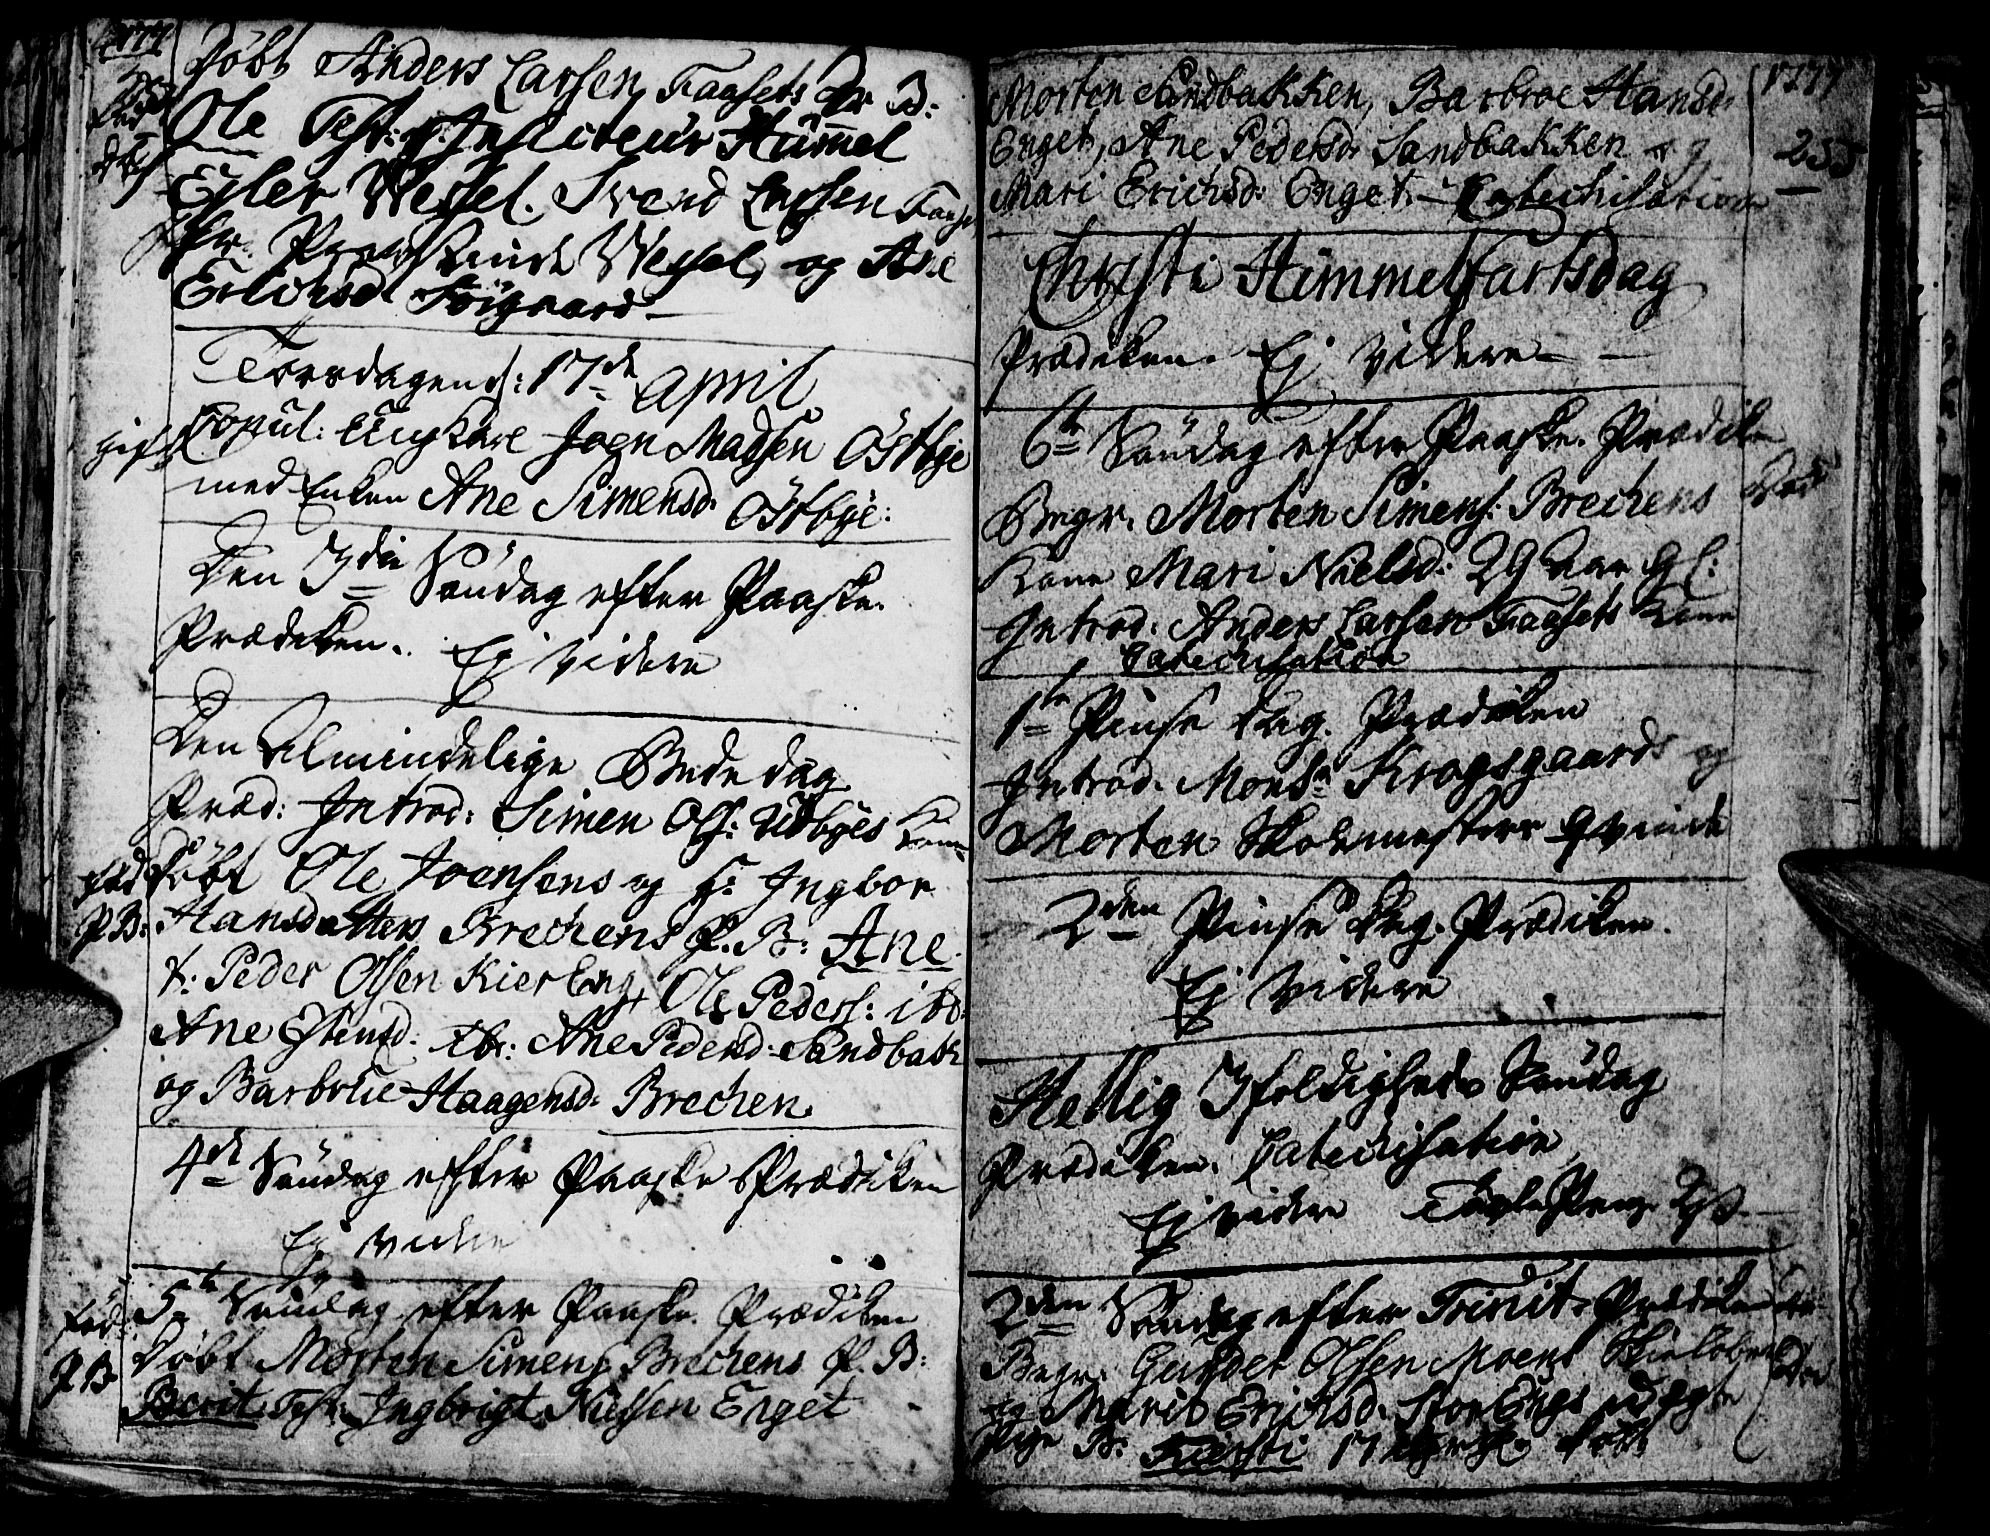 1777
Døbt Anders Larsen Faasets Dr B:
Ole Test: Hr. Inspecteur Hummel
Eiler Wessel. Svend Larsen Faaset
Fr. Wessel, og Ane
Erichsd. Föigaard
Torsdagen d: 17de April
gift
Copul: Ung Karl Joen Madsen Östbye
med Enken Ane Simensd. Östbye:
Den 3die Söndag efter Paaske.
Prædiken. Ej videre
Den Almindelige Bededag
Præd: Introd: Simen Ols: Udbyes Kone
fød
Døbt Ole Joensens og H: Ingbor
P B:
Hansdatters Brechens P. B: Ane.
T: Peder Olsen Kier Eng, Ole Peders: ibd:
Ane Estensd: ibr: Ane Pedersd: Sandbak
og Barbroe Haagensd. Brechen.
4de Söndag efter Paaske Prædiken
Ej videre
fød:
5te Söndag efter Paaske. Prædiken
P B
Døbt Morten Simens. Brechens P. B:
Berit Test: Ingbrigt Nilssen Enget
1777
255
Morten Sandbakken, Barbroe Hansd:
Enget, Ane Pedersd: Sandbakken og
Mari Erichsd: Enget. - Catechisation
Christi Himmelfartsdag
Prædiken. Ej videre
6te Söndag efter Paaske. Prædiken
Død
Begr. Morten Simens: Brechens
Kone Mari Nielsd: 29 Aar gl:
Introd: Anders Larsen Faasets Kone
Catechisation
1te Pinse dag. Prædiken
Introd. Monsr Krogsgaards og
Morten Skolemesters Qvinde
2den Pinse dag. Prædiken.
Ej videre
Hellig 3foldigheds Söndag
Prædiken. Catechisation
Ej videre Tavle Peng.
2den Söndag efter Trinit. Prædiken
Begr: Gunder Olsen Moens
og Marit Erichsd. Stor Engs
Pige B: Kiersti 17